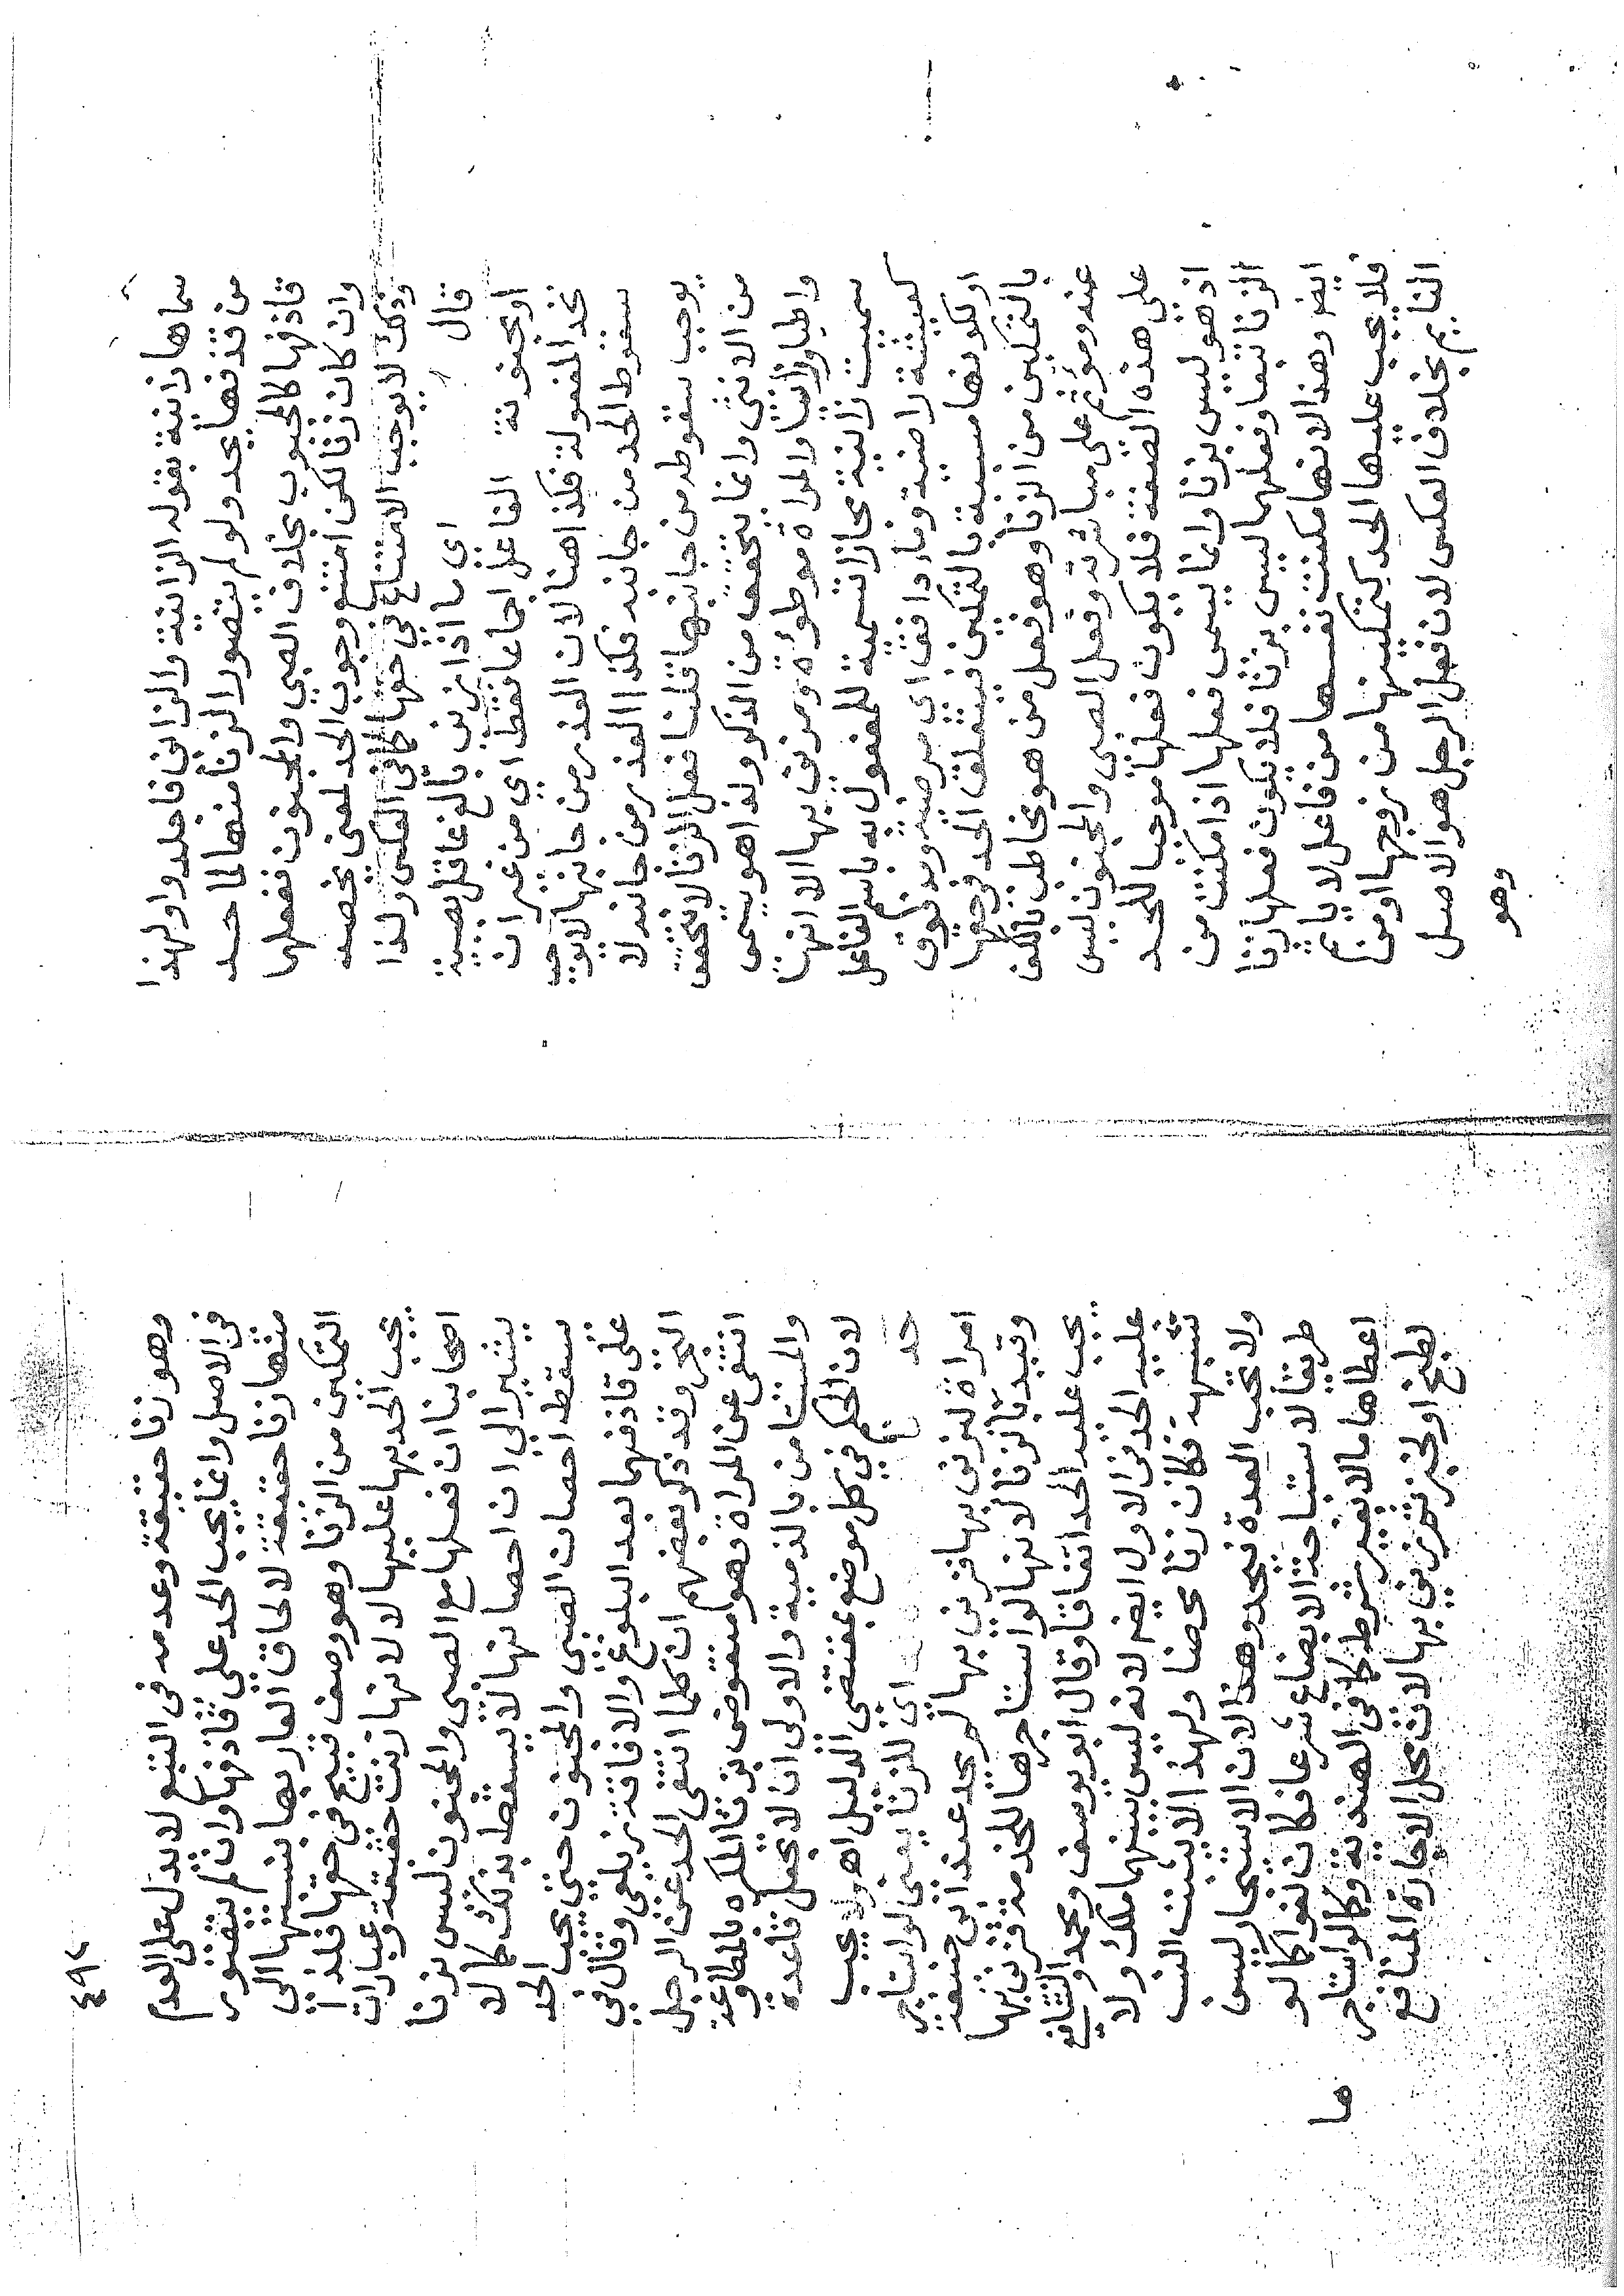 سماها زانية بقوله الزانية والزاني فاجلدوا ولهذا
من قذفها يحد ولو لم يتصور الزنا منها لما حد
قاذفها كالمجبوب بخلاف الصبي والمجنون ففعلها
وان كان زنا لكن امتنع وجوب الحد لمعنى يخصه
وذلك لا يوجب الامتناع في حقها كما في العكس ولنا
قال اي ما اذا زنى بالغ عاقل بصبية
او مجنونة الفاعل اجماعا فقط اي من غير ان
تحد المفعولة فكذا هنا لان العذر من جانبها لا يوجب
سقوط الحد من جانبه فكذا العذر من جانبه لا
يوجب سقوطه من جانبها قلنا فعل الزنا لا يتحقق
من الانثى وانما يتحقق من الذكر ولذا هو يسمى
واطيا وزانيا والمراة موطوءة ومزني بها الا انها
سميت زانية مجازا تسمية للمفعول به باسم الفاعل
كعيشة راضية وماء دافق اي مرضية ومدفوق
او لكونها مسببة بالتمكين فيتعلق الحد في حقها
بالتمكين من الزنا وهو فعل من هو مخاطب بالكف
عنه ومؤثم على مباشرته وفعل الصبي والمجنون ليس
على هذه الصفة فلا يكون فعلها موجبا للحد
اذ هو ليس بزنا وانما يسمى فعلها اذا مكنت من
الزنا تبعا وفعلهما ليس بزنا فلا يكون فعلها زنا
ايضا وهذا لانها مكنت نفسها من فاعل لا ياثم
فلا يجب عليها الحد كتمكينها من زوجها او من
النايم بخلاف العكس لان فعل الرجل هو الاصل
وهو
٤٩٢
وهو زنا حقيقة وعدمه في التبع لا يدل على العدم
في الاصل وانما يجب الحد على قاذفها وان لم يتصور
منها زنا حقيقة لالحاق العار بها بنسبتها الى
التمكين من الزنا وهو وصف قبيح في حقها فلذا
يجب الحد بها عليها لا لانها زنت حقيقة وعبارات
اصحابنا ان فعلها مع الصبي والمجنون ليس بزنا
يشير الى ان احصانها لا يسقط بذلك كما لا
يسقط احصان الصبي والمجنون حتى يجب الحد
على قاذفهما بعد البلوغ والافاقة زيلعي وقال في
البحر وقد ذكر بعضهم ان كلما انتفى الحد عن الرجل
انتفى عن المراة وهو منقوض بزنا المكره بالمطاوعة
والمستامن بالذمية والاولى ان لا تجعل قاعدة
لان الحكم في كل موضع بمقتضى الدليل اهـ ولا يجب
حد اي للزنا يعني لو استاجر
امراة ليزني بها فزنى بها لم يحد عند ابي حنيفة
وقيد بالزنا لانها لو استاجرها للخدمة فزنى بها
يجب عليه الحد اتفاقا وقال ابو يوسف ومحمد والشافعي
عليه الحد في الاول ايضا لانه ليس بينهما ملك ولا
شبهة فكان زنا محضا ولهذا لا يثبت النسب
ولا تجب العدة فيحد وهذا لان الاستئجار ليس
طريقا لاستباحة الابضاع شرعا فكان لغوا كما لو
اعطاها مالا بغير شرط كما في الهندية وكما لو استاجرها
لطبخ او لخبز ثم زنى بها لان محل الاجارة المنافع